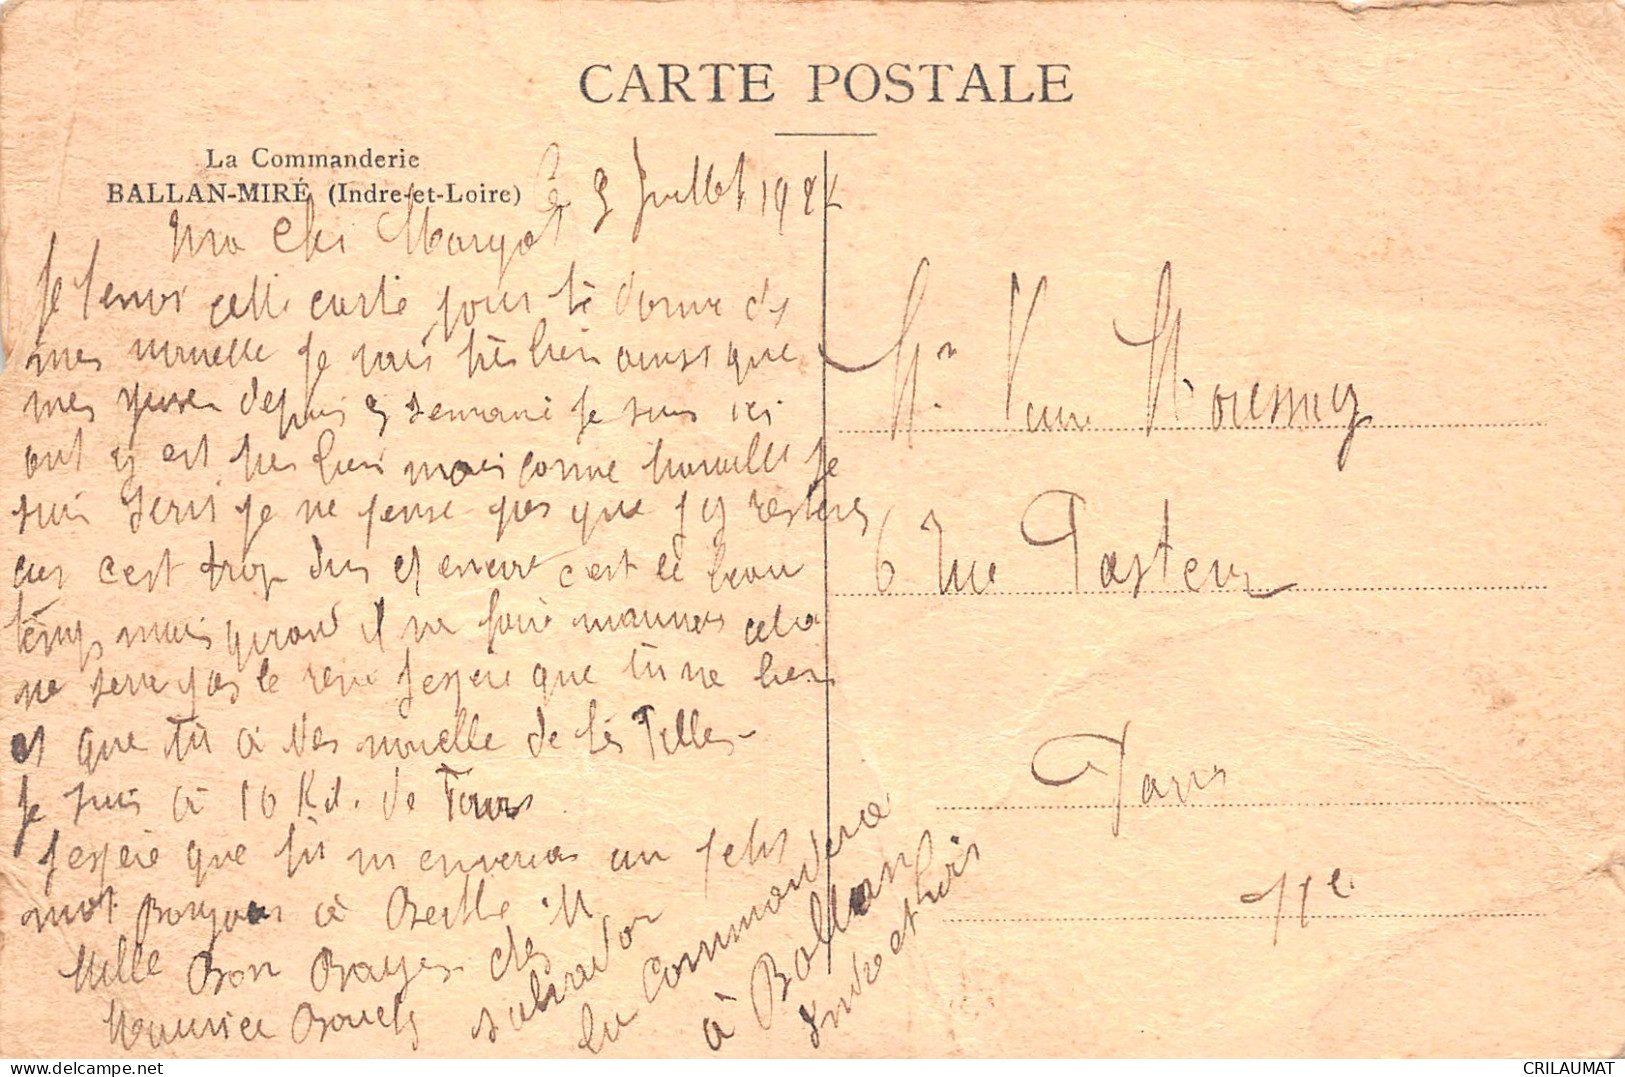 CARTE POSTALE
La Commanderie
BALLAN-MIRÉ (Indre-et-Loire)
Le 9 Juillet 192
Ma Cher Margot
Je t'envoi cette carte pour te donne des
mes nouvelle je vais très bien ainsi que
mes depuis semaine je suis ici
ont y est très bien mais comme travaille je
suis je ne pense pas que j'y resterès
car c'est trop dur et encore c'est le beau
temps mais quand il ne faire mauvais cela
ne sera pas le rêve J'espère que tu ne bien
et que tu à des nouvelle de tes filles
Je suis à 10 Kil. de Tours
J'espère que tu m'enverras un petit
mot Bonjour à Berthe
Mille Bon Baiser de
Maurice
la Commanderie
à Ballan
Indre et Loire
Mme Vve
6 Rue Pasteur
Paris
11e
CRILAUMAT
delcampe.net